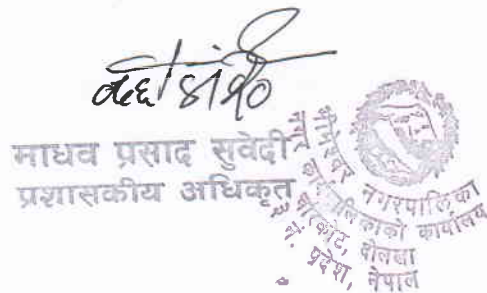 माधव प्रसाद सुवेदी
प्रशासकीय अधिकृत
भीमेश्वर नगरपालिका
नगर कार्यपालिकाको कार्यालय
चरिकोट, दोलखा
प्रदेश, नेपाल